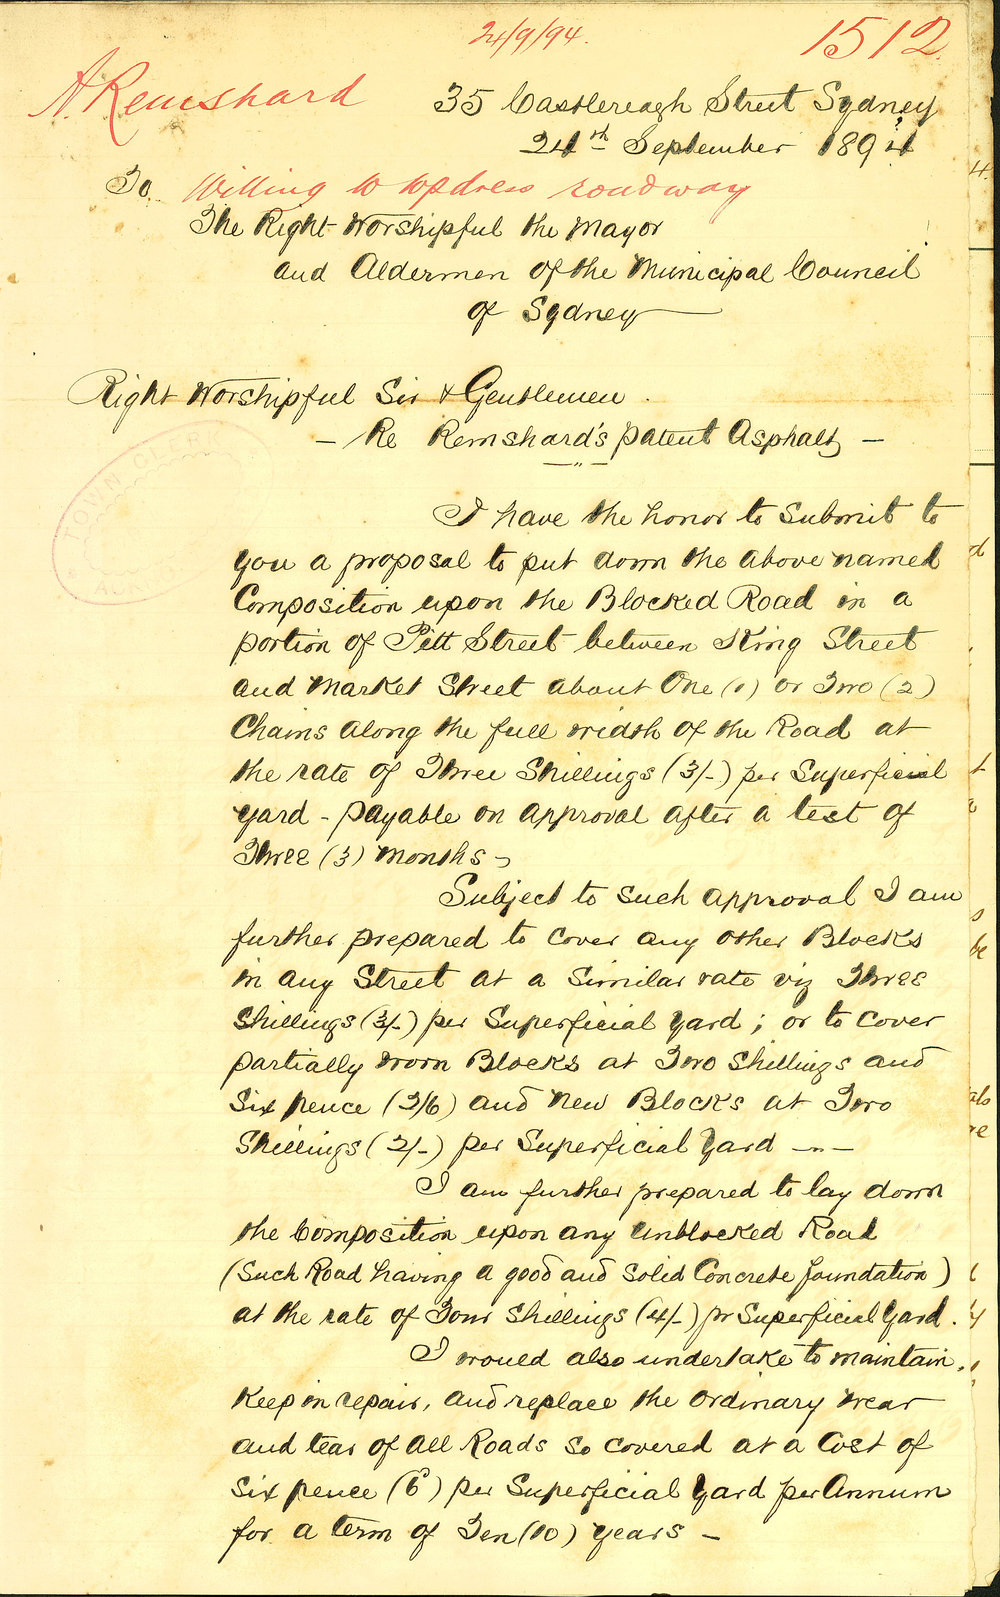 24/9/94.
1512
A. Remshard
35 Castlereagh Street Sydney
24th September 1894
To
Willing to topdress roadway
The Right Worshipful the Mayor
and Aldermen of the Municipal Council
of Sydney
Right Worshipful Sir & Gentlemen.
- Re Remshard's Patent Asphalt -
I have the honor to submit to
you a proposal to put down the above named
Composition upon the Blocked Road in a
portion of Pitt Street between King Street
and Market Street about One (1) or Two (2)
Chains along the full width of the Road at
the rate of Three Shillings (3/-) per Superficial
yard - payable on approval after a test of
Three (3) months -
Subject to such approval I am
further prepared to cover any other Blocks
in any Street at a Similar rate viz Three
Shillings (3/-) per Superficial Yard; or to cover
partially worn Blocks at Two Shillings and
Six pence (2/6) and New Blocks at Two
Shillings (2/-) per Superficial Yard -"-
I am further prepared to lay down
the Composition upon any unblocked Road
(Such Road having a good and Solid Concrete foundation)
at the rate of Four Shillings (4/-) pr Superficial Yard.
I would also undertake to maintain,
Keep in repair, and replace the ordinary wear
and tear of all Roads so covered at a Cost of
Six pence (6) per Superficial Yard per Annum
for a term of Ten (10) years -